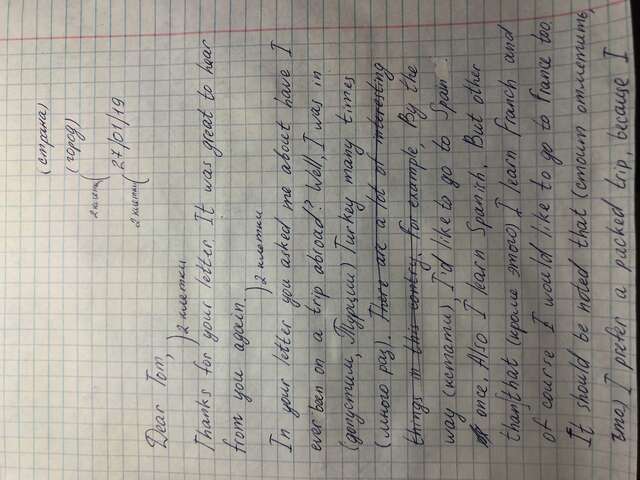 (страна)
(город)
2 клетки
27/01/19
2 клетки
Dear Tom,
2 клетки
Thanks for your letter. It was great to hear
from you again.
2 клетки
In your letter you asked me about have I
ever been on a trip abroad? Well, I was in
(допустим, Турции) Turkey many times
(много раз). There are a lot of interesting
things in this contry. For example, By the
way (кстати), I'd like to go to Spain
once. Also I learn Spanish. But other
than that (кроме этого) I learn Franch and
of course I would like to go to France too.
It should be noted that (стоит отметить,
что) I prefer a packed trip, because I